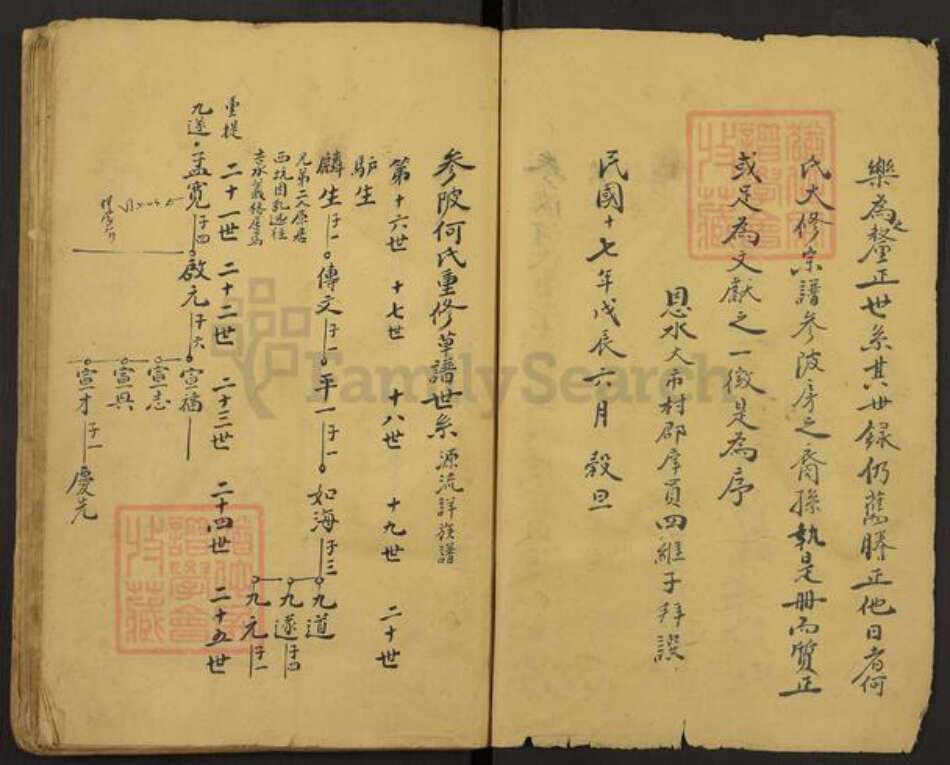 樂為釐正世系其世録仍舊謄正他日者何
氏大修宗譜參陂房之裔孫執是冊而質正
或足為文獻之一徵是為序
恩水大市村郡庠員四維子拜譔
民國十七年戊辰六月穀旦
參陂何氏重修草譜世系源流詳族譜
第十六世 十七世 十八世 十九世 二十世
馿生
麟生子一 傳文子一 平一子一 如海子三 九道
九遂子四
九元子一
兄弟二人原居
西坑因乱逃往
吉水
重提 二十一世 二十二世 二十三世 二十四世 二十五世
九遂 孟寬子四 啟元子六 宣福
宣志
宣具
宣才子一 慶先
FamilySearch